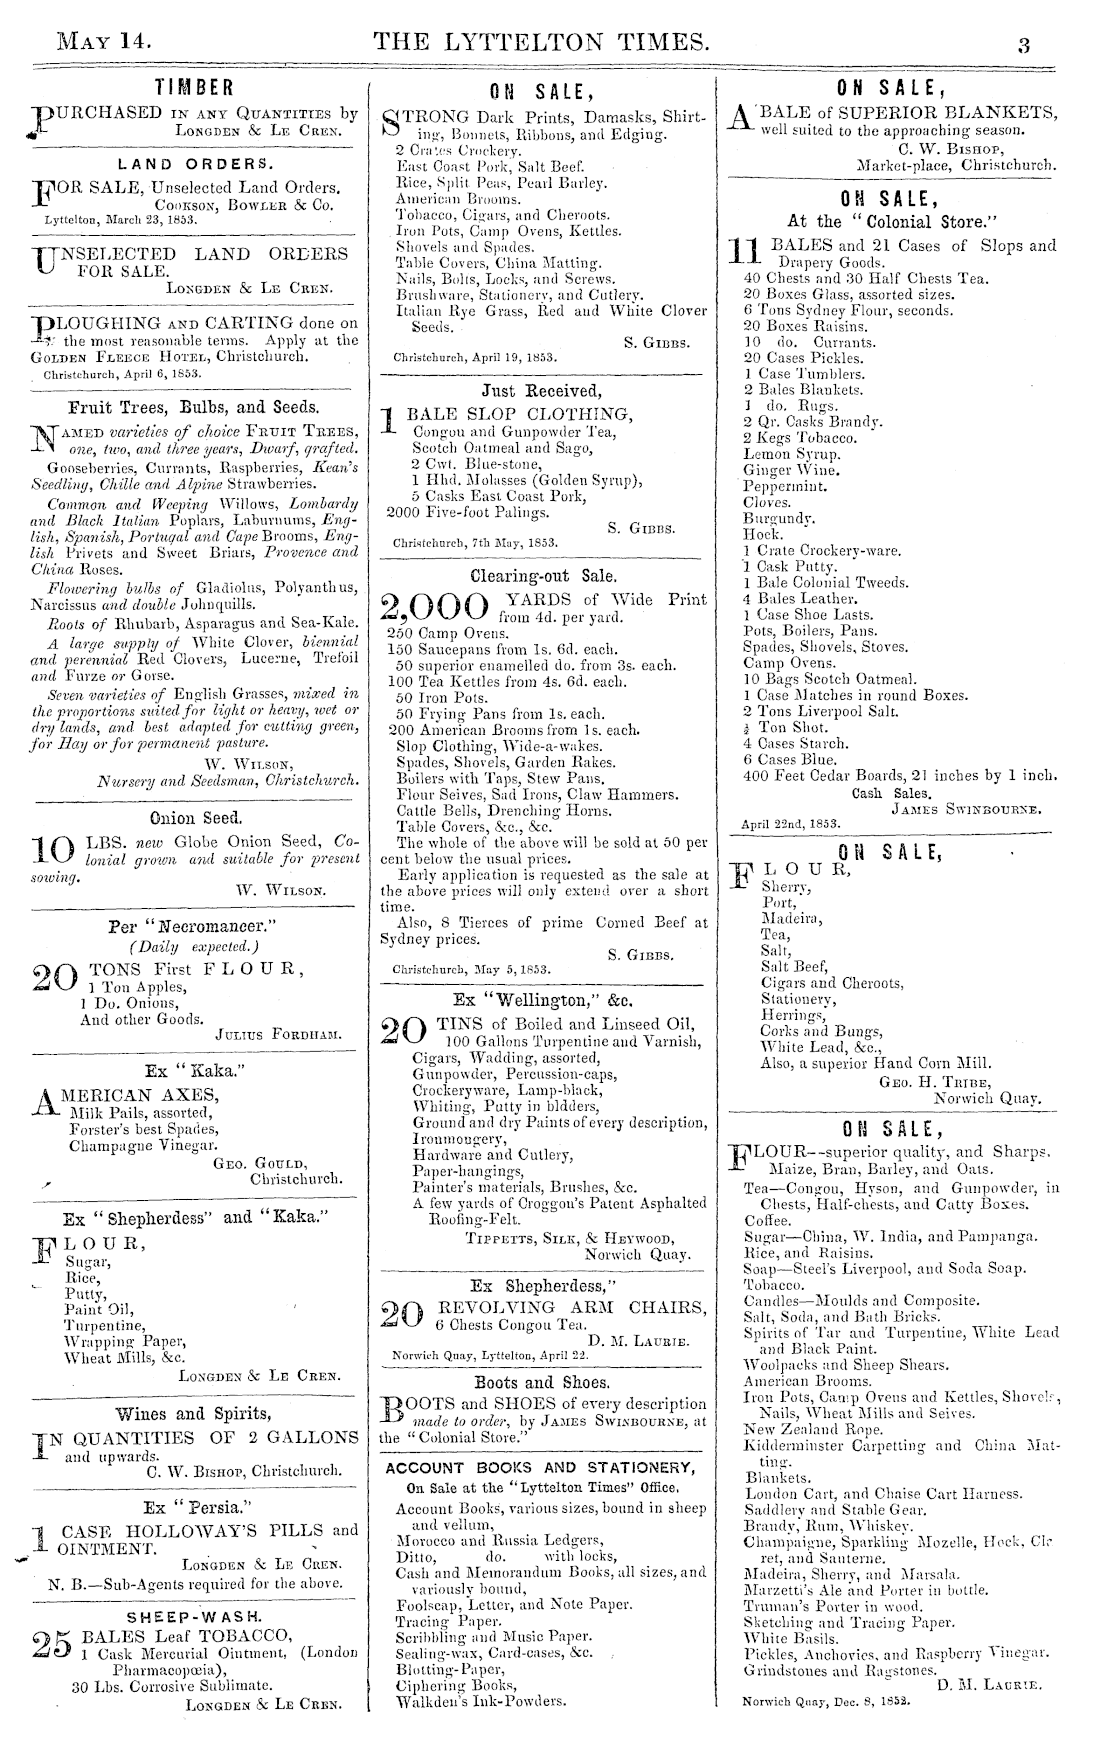 MAY 14.
THE LYTTELTON TIMES.
3
TIMBER
PURCHASED IN ANY QUANTITIES by
LONGDEN & LE CREN.
LAND ORDERS.
FOR SALE, Unselected Land Orders.
COOKSON, BOWLER & Co.
Lyttelton, March 23, 1853.
UNSELECTED LAND ORDERS
FOR SALE.
LONGDEN & LE CREN.
PLOUGHING AND CARTING done on
the most reasonable terms. Apply at the
GOLDEN FLEECE HOTEL, Christchurch.
Christchurch, April 6, 1853.
Fruit Trees, Bulbs, and Seeds.
NAMED varieties of choice FRUIT TREES,
one, two, and three years, Dwarf, grafted.
Gooseberries, Currants, Raspberries, Kean's
Seedling, Chille and Alpine Strawberries.
Common and Weeping Willows, Lombardy
and Black Italian Poplars, Laburnums, Eng-
lish, Spanish, Portugal and Cape Brooms, Eng-
lish Privets and Sweet Briars, Provence and
China Roses.
Flowering bulbs of Gladiolus, Polyanthus,
Narcissus and double Johnquills.
Roots of Rhubarb, Asparagus and Sea-Kale.
A large supply of White Clover, biennial
and perennial Red Clovers, Lucerne, Trefoil
and Furze or Gorse.
Seven varieties of English Grasses, mixed in
the proportions suited for light or heavy, wet or
dry lands, and best adapted for cutting green,
for Hay or for permanent pasture.
W. WILSON,
Nursery and Seedsman, Christchurch.
Onion Seed.
10 LBS. new Globe Onion Seed, Co-
lonial grown and suitable for present
sowing.
W. WILSON.
Per "Necromancer."
(Daily expected.)
20 TONS First FLOUR,
1 Ton Apples,
1 Do. Onions,
And other Goods.
JULIUS FORDHAM.
Ex "Kaka."
AMERICAN AXES,
Milk Pails, assorted,
Forster's best Spades,
Champagne Vinegar.
GEO. GOULD,
Christchurch.
Ex "Shepherdess" and "Kaka."
FLOUR,
Sugar,
Rice,
Putty,
Paint Oil,
Turpentine,
Wrapping Paper,
Wheat Mills, &c.
LONGDEN & LE CREN.
Wines and Spirits,
IN QUANTITIES OF 2 GALLONS
and upwards.
C. W. BISHOP, Christchurch.
Ex "Persia."
1 CASE HOLLOWAY'S PILLS and
OINTMENT.
LONGDEN & LE CREN.
N. B.—Sub-Agents required for the above.
SHEEP-WASH.
25 BALES Leaf TOBACCO,
1 Cask Mercurial Ointment, (London
Pharmacopœia),
30 Lbs. Corrosive Sublimate.
LONGDEN & LE CREN.
ON SALE,
STRONG Dark Prints, Damasks, Shirt-
ing, Bonnets, Ribbons, and Edging.
2 Crates Crockery.
East Coast Pork, Salt Beef.
Rice, Split Peas, Pearl Barley.
American Brooms.
Tobacco, Cigars, and Cheroots.
Iron Pots, Camp Ovens, Kettles.
Shovels and Spades.
Table Covers, China Matting.
Nails, Bolts, Locks, and Screws.
Brushware, Stationery, and Cutlery.
Italian Rye Grass, Red and White Clover
Seeds.
S. GIBBS.
Christchurch, April 19, 1853.
Just Received,
1 BALE SLOP CLOTHING,
Congou and Gunpowder Tea,
Scotch Oatmeal and Sago,
2 Cwt. Blue-stone,
1 Hhd. Molasses (Golden Syrup),
5 Casks East Coast Pork,
2000 Five-foot Palings.
S. GIBBS.
Christchurch, 7th May, 1853.
Clearing-out Sale.
2,000 YARDS of Wide Print
from 4d. per yard.
250 Camp Ovens.
150 Saucepans from 1s. 6d. each.
50 superior enamelled do. from 3s. each.
100 Tea Kettles from 4s. 6d. each.
50 Iron Pots.
50 Frying Pans from 1s. each.
200 American Brooms from 1s. each.
Slop Clothing, Wide-a-wakes.
Spades, Shovels, Garden Rakes.
Boilers with Taps, Stew Pans.
Flour Seives, Sad Irons, Claw Hammers.
Cattle Bells, Drenching Horns.
Table Covers, &c., &c.
The whole of the above will be sold at 50 per
cent below the usual prices.
Early application is requested as the sale at
the above prices will only extend over a short
time.
Also, 8 Tierces of prime Corned Beef at
Sydney prices.
S. GIBBS.
Christchurch, May 5, 1853.
Ex "Wellington," &c.
20 TINS of Boiled and Linseed Oil,
100 Gallons Turpentine and Varnish,
Cigars, Wadding, assorted,
Gunpowder, Percussion-caps,
Crockeryware, Lamp-black,
Whiting, Putty in bldders,
Ground and dry Paints of every description,
Ironmongery,
Hardware and Cutlery,
Paper-hangings,
Painter's materials, Brushes, &c.
A few yards of Croggon's Patent Asphalted
Roofing-Felt.
TIPPETTS, SILK, & HEYWOOD,
Norwich Quay.
Ex Shepherdess,"
20 REVOLVING ARM CHAIRS,
6 Chests Congou Tea.
D. M. LAURIE.
Norwich Quay, Lyttelton, April 22.
Boots and Shoes.
BOOTS and SHOES of every description
made to order, by JAMES SWINBOURNE, at
the "Colonial Store."
ACCOUNT BOOKS AND STATIONERY,
On Sale at the "Lyttelton Times" Office.
Account Books, various sizes, bound in sheep
and vellum,
Morocco and Russia Ledgers,
Ditto, do. with locks,
Cash and Memorandum Books, all sizes, and
variously bound,
Foolscap, Letter, and Note Paper.
Tracing Paper.
Scribbling and Music Paper.
Sealing-wax, Card-cases, &c.
Blotting-Paper,
Ciphering Books,
Walkden's Ink-Powders.
ON SALE,
A BALE of SUPERIOR BLANKETS,
well suited to the approaching season.
C. W. BISHOP,
Market-place, Christchurch.
ON SALE,
At the "Colonial Store."
11 BALES and 21 Cases of Slops and
Drapery Goods.
40 Chests and 30 Half Chests Tea.
20 Boxes Glass, assorted sizes.
6 Tons Sydney Flour, seconds.
20 Boxes Raisins.
10 do. Currants.
20 Cases Pickles.
1 Case Tumblers.
2 Bales Blankets.
1 do. Rugs.
2 Qr. Casks Brandy.
2 Kegs Tobacco.
Lemon Syrup.
Ginger Wine.
Peppermint.
Cloves.
Burgundy.
Hock.
1 Crate Crockery-ware.
1 Cask Putty.
1 Bale Colonial Tweeds.
4 Bales Leather.
1 Case Shoe Lasts.
Pots, Boilers, Pans.
Spades, Shovels, Stoves.
Camp Ovens.
10 Bags Scotch Oatmeal.
1 Case Matches in round Boxes.
2 Tons Liverpool Salt.
½ Ton Shot.
4 Cases Starch.
6 Cases Blue.
400 Feet Cedar Boards, 21 inches by 1 inch.
Cash Sales.
JAMES SWINBOURNE.
April 22nd, 1853.
ON SALE,
FLOUR,
Sherry,
Port,
Madeira,
Tea,
Salt,
Salt Beef,
Cigars and Cheroots,
Stationery,
Herrings,
Corks and Bungs,
White Lead, &c.,
Also, a superior Hand Corn Mill.
GEO. H. TRIBE,
Norwich Quay.
ON SALE,
FLOUR--superior quality, and Sharps.
Maize, Bran, Barley, and Oats.
Tea—Congou, Hyson, and Gunpowder, in
Chests, Half-chests, and Catty Boxes.
Coffee.
Sugar—China, W. India, and Pampanga.
Rice, and Raisins.
Soap—Steel's Liverpool, and Soda Soap.
Tobacco.
Candles—Moulds and Composite.
Salt, Soda, and Bath Bricks.
Spirits of Tar and Turpentine, White Lead
and Black Paint.
Woolpacks and Sheep Shears.
American Brooms.
Iron Pots, Camp Ovens and Kettles, Shovels,
Nails, Wheat Mills and Seives.
New Zealand Rope.
Kidderminster Carpetting and China Mat-
ting.
Blankets.
London Cart, and Chaise Cart Harness.
Saddlery and Stable Gear.
Brandy, Rum, Whiskey.
Champaigne, Sparkling Mozelle, Hock, Cla-
ret, and Sauterne.
Madeira, Sherry, and Marsala.
Marzetti's Ale and Porter in bottle.
Truman's Porter in wood.
Sketching and Tracing Paper.
White Basils.
Pickles, Anchovies, and Raspberry Vinegar.
Grindstones and Ragstones.
D. M. LAURIE.
Norwich Quay, Dec. 8, 1852.